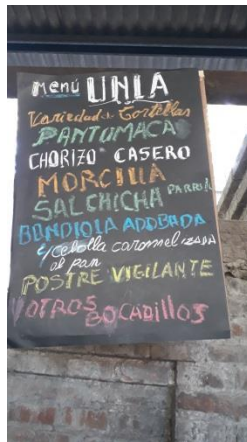 Menú UNLA
Variedad de Tortillas
PANTUMACA
CHORIZO CASERO
MORCILLA
SALCHICHA PARRILL
BONDIOLA ADOBADA
c/cebolla caramelizada
al pan
POSTRE VIGILANTE
OTROS BOCADILLOS